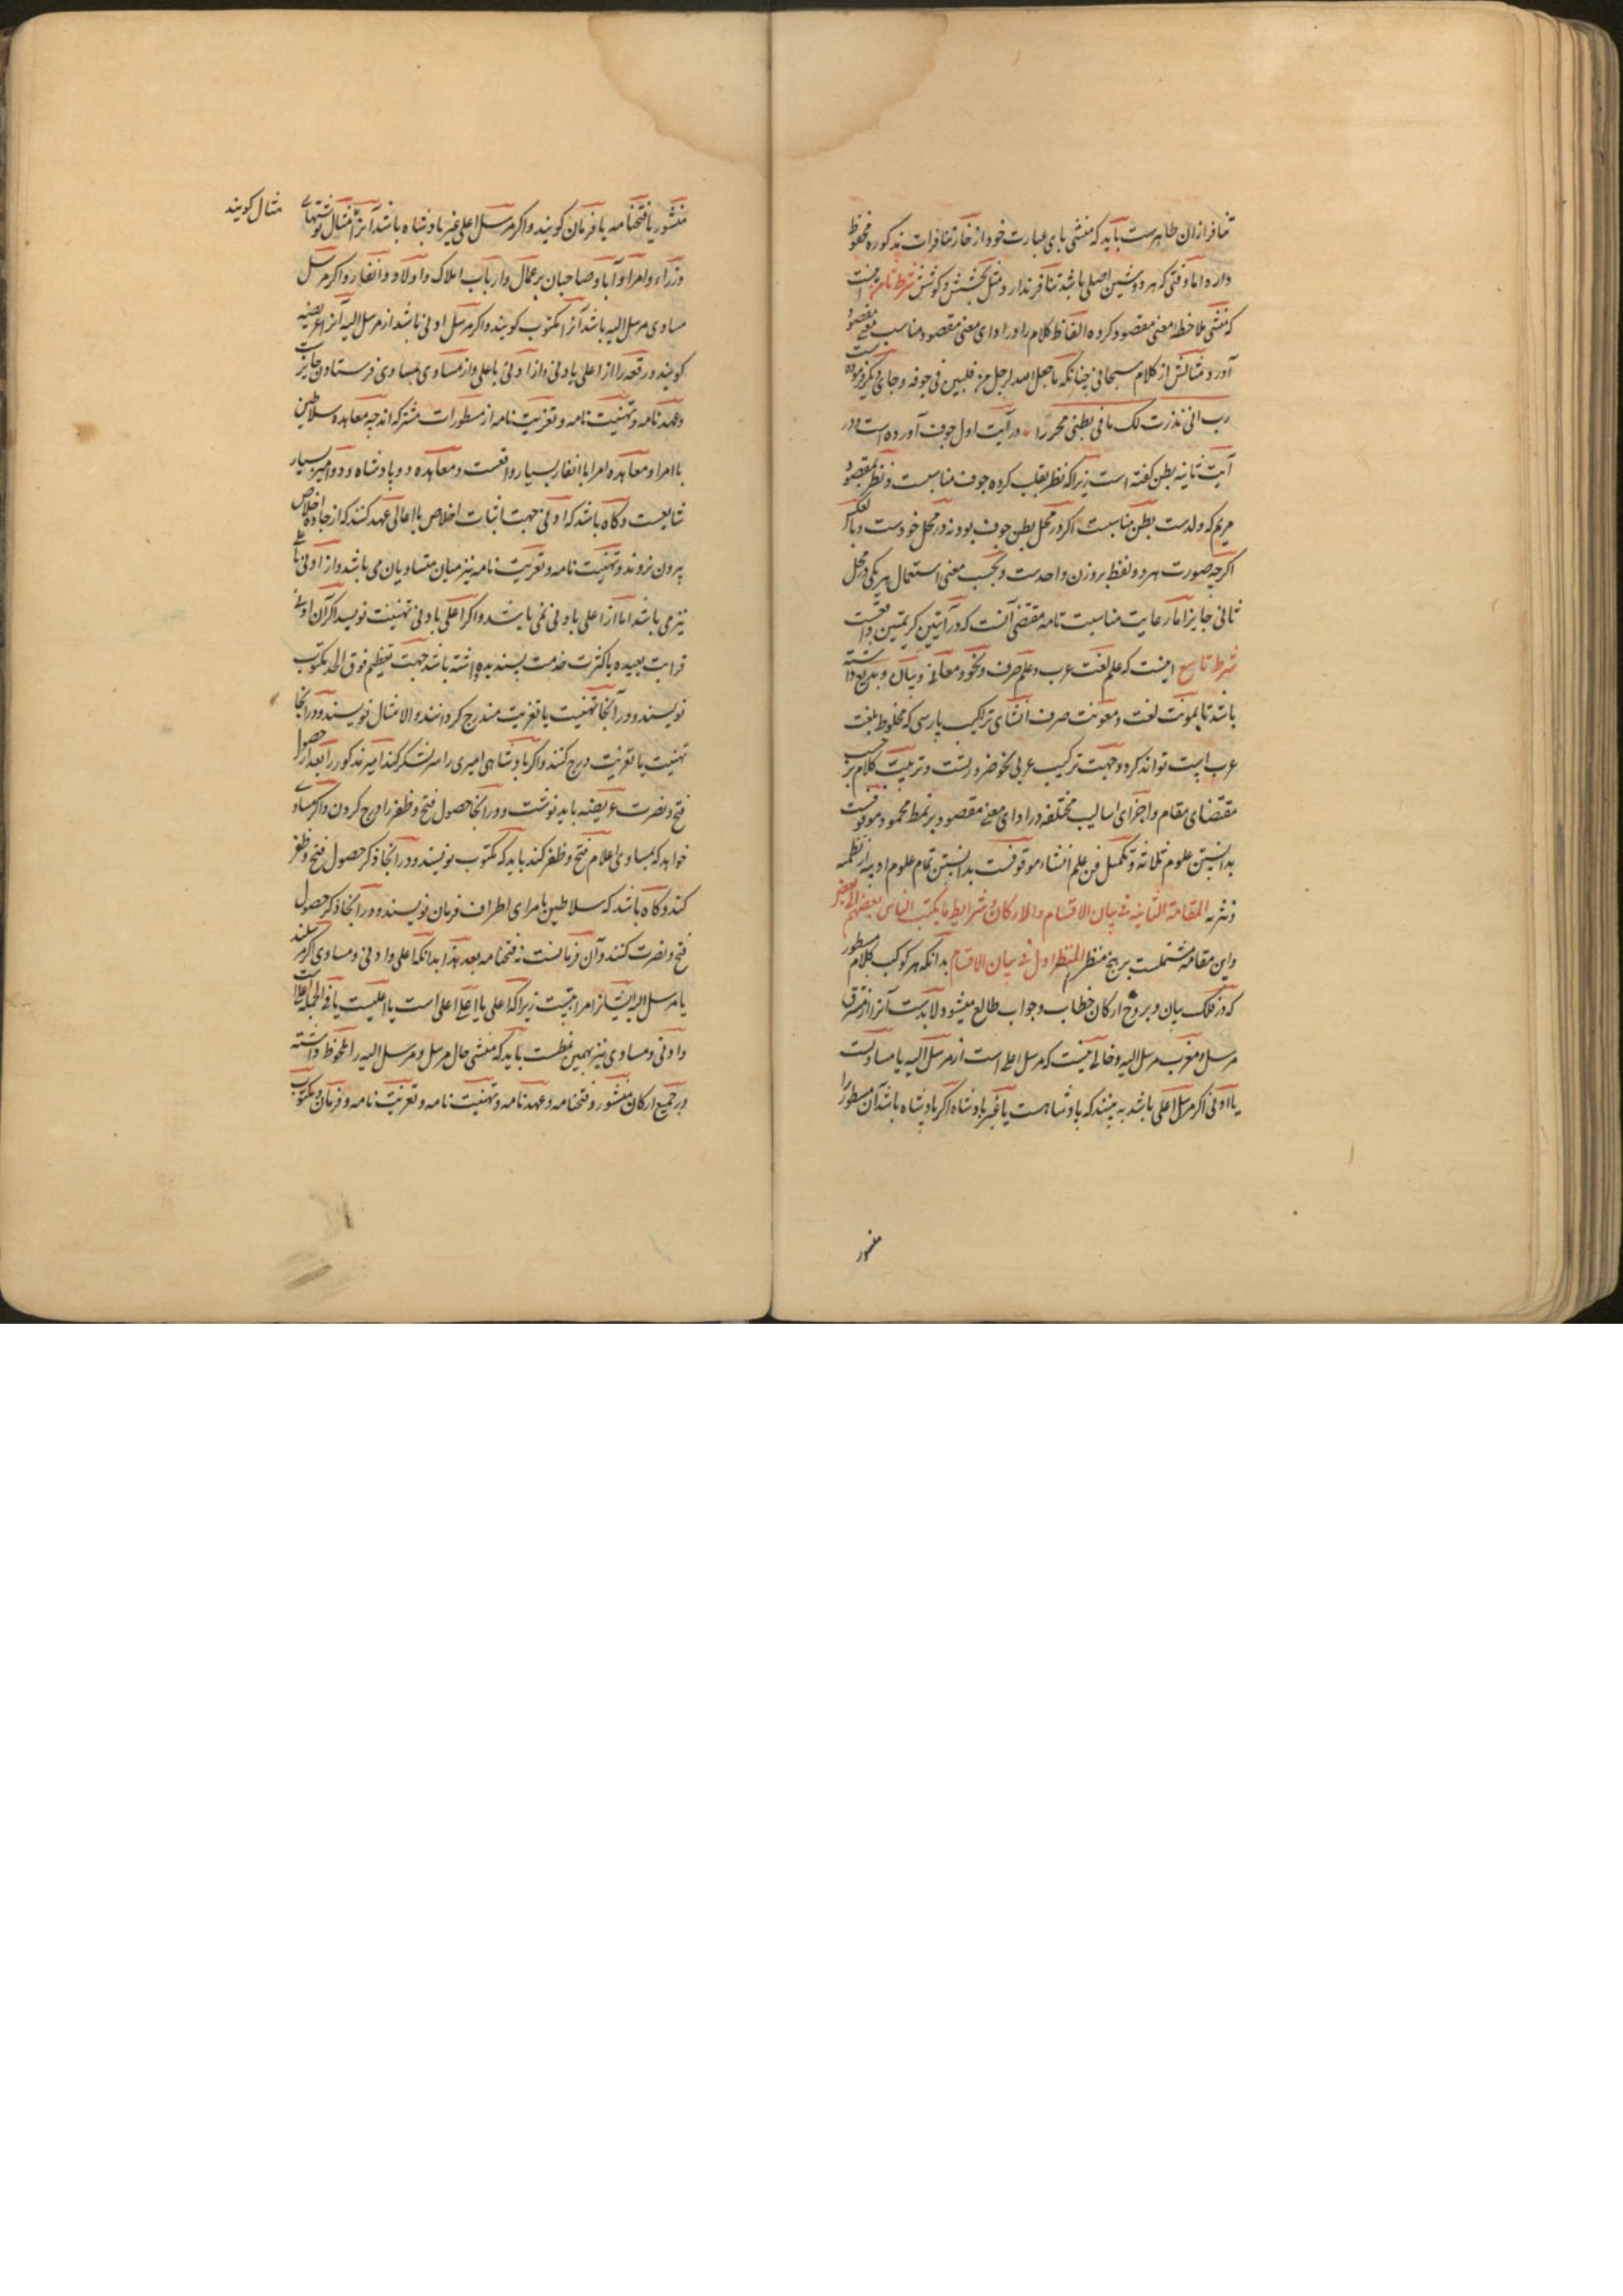 تنافر ازان ظاهرست باید که منشی پای عبارت خود از خار تنافرات مذکوره محفوظ
دارد اما وقتی که هر دو شین اصلی باشد تنافر ندارد مثل بخشش و کوشش شرط ثامن اینست
که منشی ملاحظه معنی مقصود کرده الفاظ کلام را در ادای معنی مقصود مناسب معنی مقصود
آورد و مثالش از کلام سبحانی چنانکه ما جعل الله لرجل من قلبین فی جوفه و جای دیکر فرموده است
رب انی نذرت لک ما فی بطنی محررا در آیت اول جوف آورده است و در
آیت ثانیه بطن کفته است زیرا که نظر بقلب کرده جوف مناسبست و نظر بمقصود
مریم که ولدست بطن مناسبست اکر در محل بطن جوف بود نه در محل خودست و بالعکس
اکرچه صورت هر دو لفظ بر وزن واحدست و بحسب معنی استعمال هر یکی در محل
ثانی جایز اما رعایت مناسبت تامه مقتضی آنست که در آیتین کریمتین واقعست
شرط تاسع اینست که علم لغت عرب و علم صرف و نحو و معانی و بیان و بدیع دانسته
باشد تا بمونت لغت و معونت صرف انشای تراکیب پارسی که مخلوط بلغت
عرب است تواند کرد و جهت ترکیب عربی نحو ضرورتست و ترتیب کلام بر حسب
مقتضای مقام و اجرای اسالیب مختلفه در ادای معنی مقصود بر نمط محمود موقوفست
بدانستن علوم ثلاثه و تکمیل فن علم انشاء موقوفست بدانستن تمام علوم ادبیه از نظمیه
و نثریه المقامة الثانیه فی بیان الاقسام والارکان و شرایط ما یکتب الناس بعضهم الی بعض
واین مقامه مشتملست بر پنج منظر المنظر اول فی بیان الاقسام بدانکه هر کوکب کلام مسطور
که از فلک بیان و بروج ارکان خطاب و جواب طالع میشود لابدست آنرا از مشرق
مرسل و مغرب مرسل الیه و خالی نیست که مرسل اعلی است از مرسل الیه یا مساویست
یا ادنی اکر مرسل اعلی باشد به بینند که پادشاهست یا غیر پادشاه اکر پادشاه باشد آن مسطور را
منشور
منشور یا فتحنامه یا فرمان کویند و اکر مرسل اعلی غیر پادشاه باشد آنرا مثال نوشتهای
مثال کویند
وزراء و امرا و آباء و صاحبان بر عمال و ارباب املاک و اولاد و انفار و اکر مرسل
مساوی مرسل الیه باشد آنرا مکتوب کویند و اکر مرسل ادنی باشد از مرسل الیه آنرا عریضه
کویند و رقعه را از اعلی بادنی و از ادنی باعلی و از مساوی بمساوی فرستادن جایزست
وعهدنامه و تهنیت نامه و تعزیت نامه از مسطورات مشترکه اند چه معاهده سلاطین
با امرا و معاهده امرا با انفار بسیار واقعست و معاهده دو پادشاه و دو امیر بسیار
شایعست و کاه باشد که ادنی جهت اثبات اخلاص با اعالی عهد کنند که از جاده اخلاص
بیرون نروند و تهنیت نامه و تعزیت نامه نیز میان متساویان می باشد و از ادنی باعلی
نیز می باشد اما از اعلی بادنی نمی باشد و اکر اعلی بادنی تهنیت نویسد اکر آن ادنی
قرابت بعیده یا کثرت خدمت پسندیده داشته باشد جهت تعظیم فوق الحد مکتوب
نویسند و در آنجا تهنیت یا تعزیت مندرج کردانند و الا مثال نویسند و در انجا
تهنیت یا تعزیت درج کنند و اکر پادشاهی امیری را سر لشکر کند امیر مذکور را بعد از حصول
فتح و نصرت عریضه باید نوشت و در انجا حصول فتح و ظفر را درج کردن و اکر مساوی
خواهد که بمساوی اعلام فتح و ظفر کند باید که مکتوب نویسد و در انجا ذکر حصول فتح و ظفر
کند و کاه باشد که سلاطین بامرای اطراف فرمان نویسند و در انجا ذکر حصول
فتح و نصرت کنند و آن فرمانست نه فتحنامه بعد هذا بدانکه اعلی و ادنی و مساوی اکر مرسلند
یا مرسل الیه ایشانرا مراتبست زیرا که اعلی یا اعلی اعلی است یا اعلیست یا فی الجمله اعلاست
وادنی و مساوی نیز بهمین نمطست باید که منشی حال مرسل و مرسل الیه را ملحوظ داشته
در جمیع ارکان منشور و فتحنامه و عهدنامه و تهنیت نامه و تعزیت نامه و فرمان و مکتوب